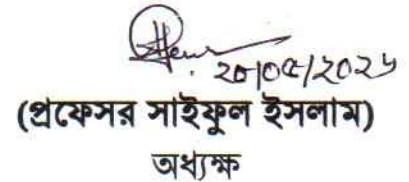 ২০/০৫/২০২৬
(প্রফেসর সাইফুল ইসলাম)
অধ্যক্ষ